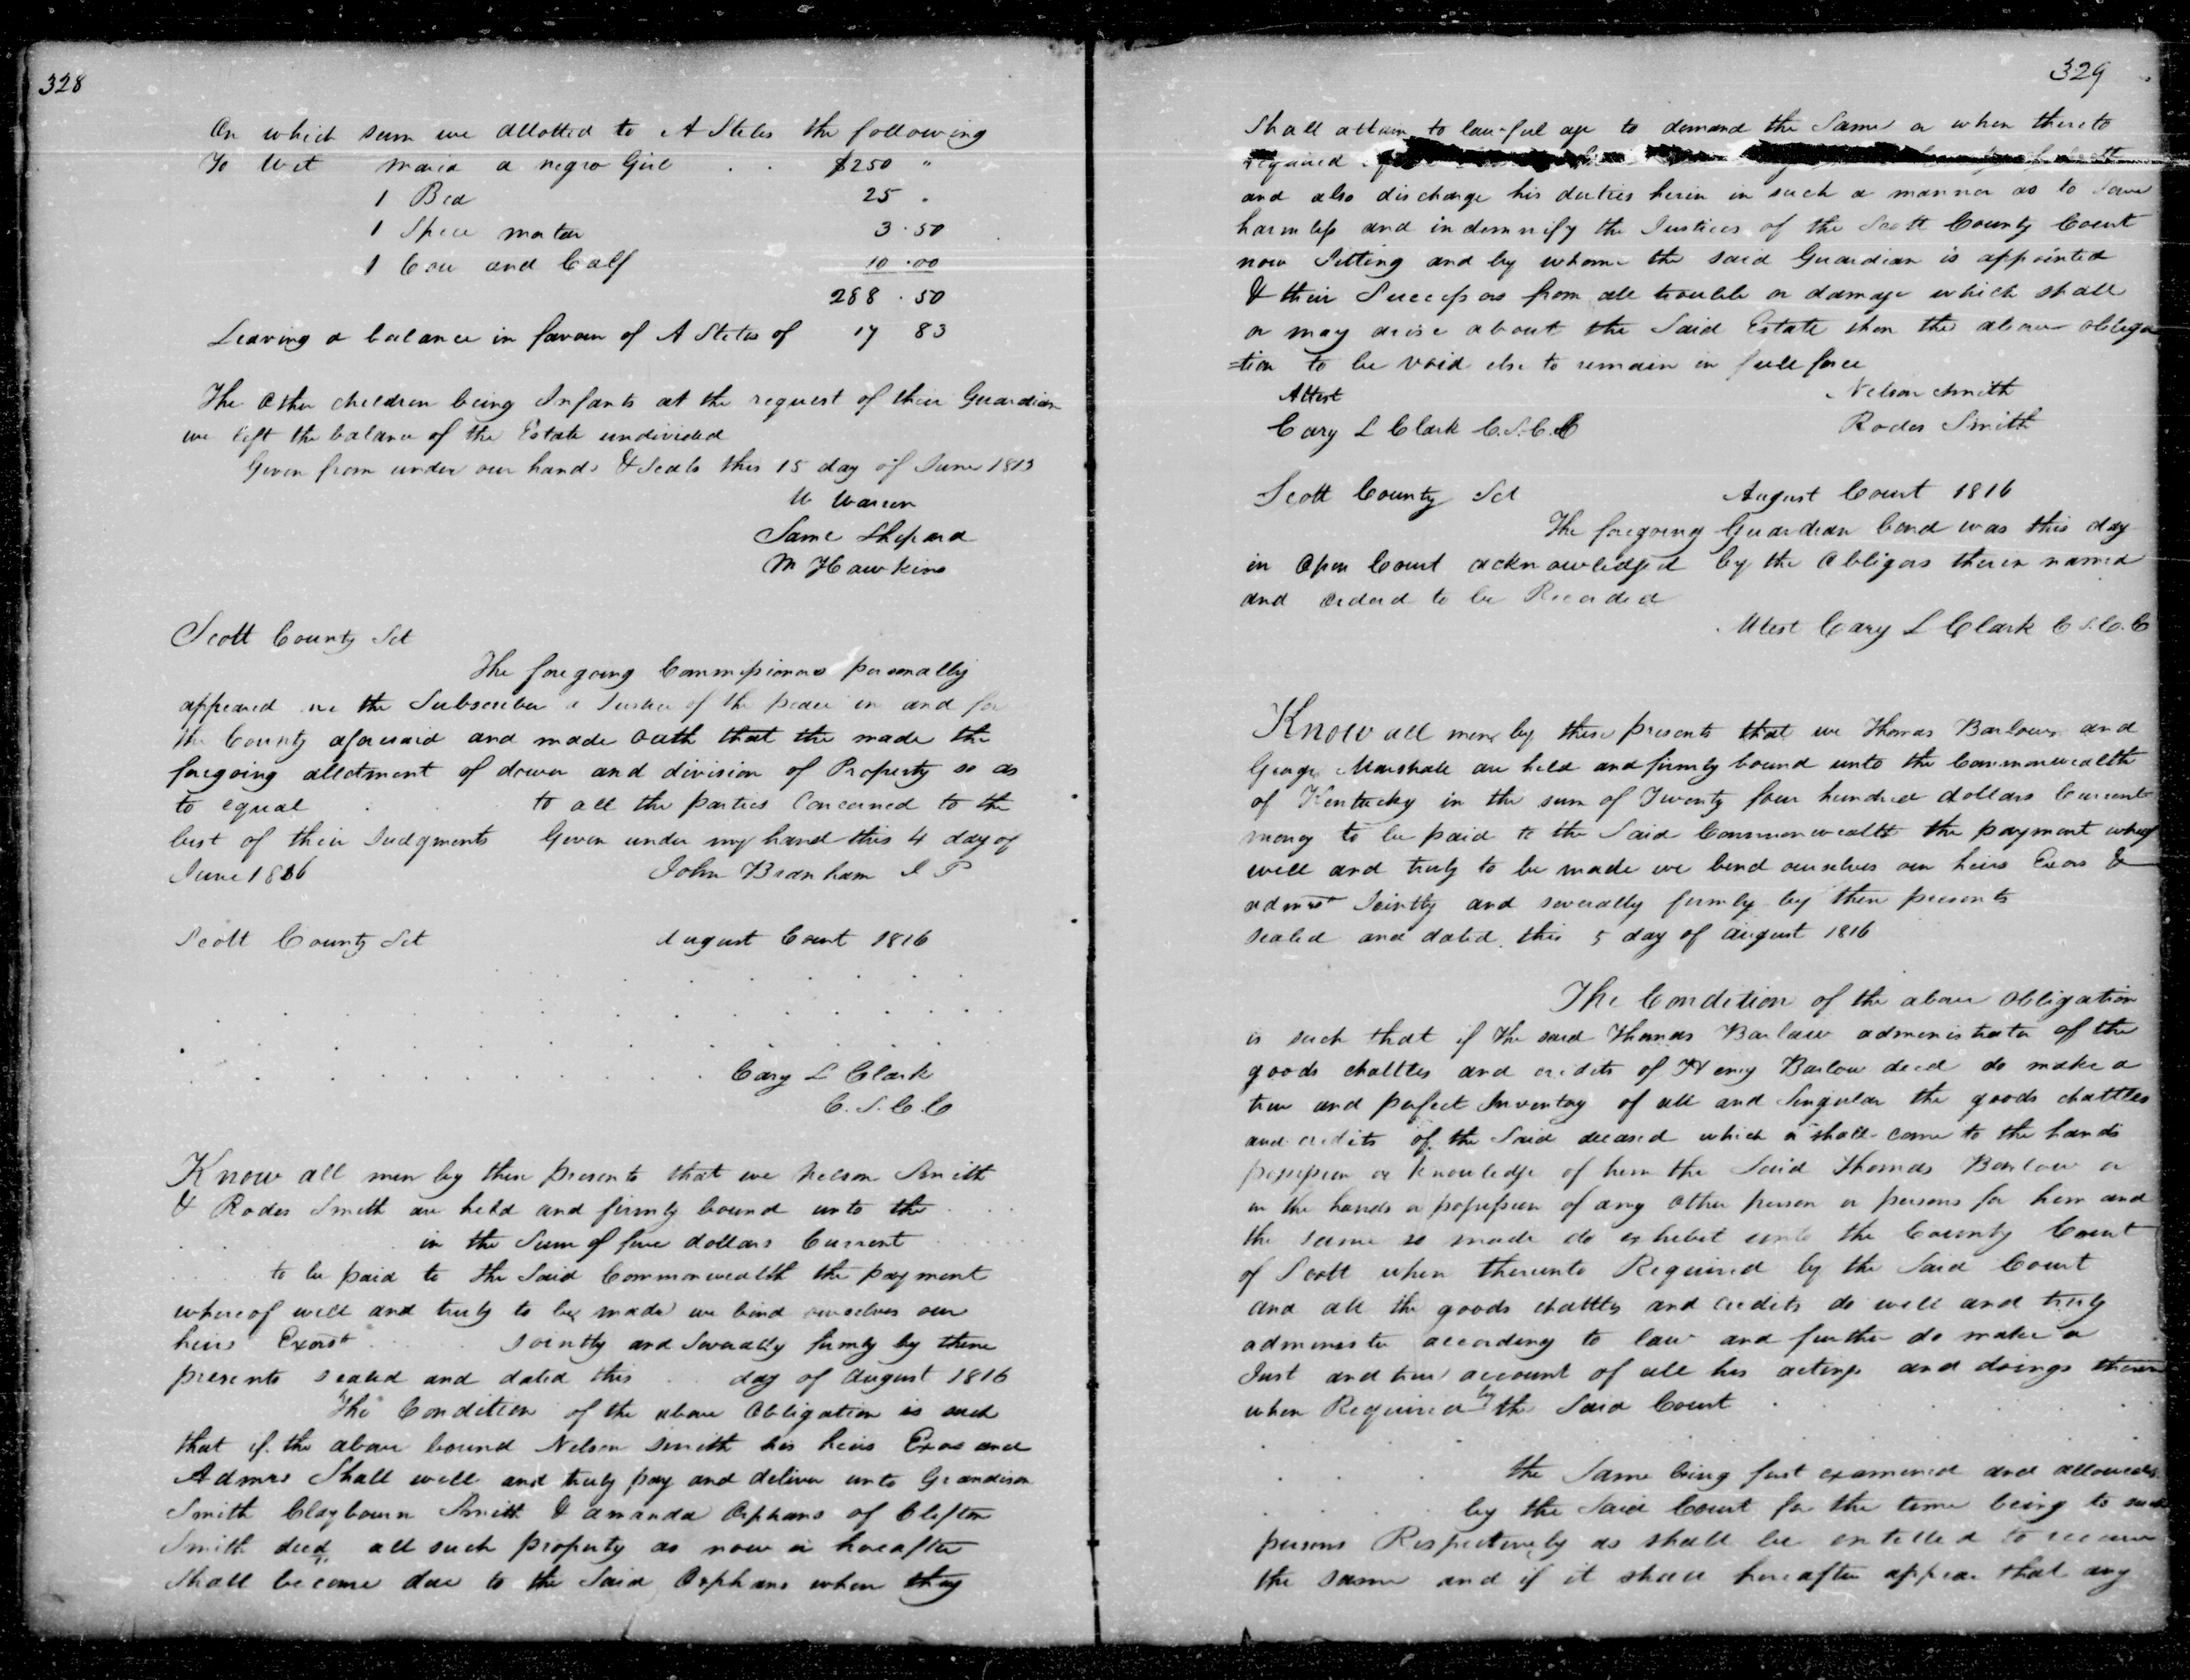 328
On which sum we allotted to A Stites the following
To Wit Maria a negro Girl . . $250 "
1 Bed 25 .
1 Spice mortar 3.50
1 Cow and Calf 10.00
288.50
Leaving a balance in favour of A Stites of 17 83
The other children being Infants at the request of their Guardian
we left the balance of the Estate undivided
Given from under our hands & Seals this 15 day of June 1813
W Warren
Saml Shepard
M Hawkins
Scott County Sct
The foregoing Commissioners personally
appeared me the Subscriber a Justice of the peace in and for
the County aforesaid and made oath that the made the
foregoing allotment of dower and division of Property so as
to equal to all the parties Concerned to the
best of their Judgments Given under my hand this 4 day of
June 1816
John Branham J P
Scott County Sct August Court 1816
Cary L Clark
C.S.C.C
Know all men by these presents that we Nelson Smith
& Rodes Smith are held and firmly bound unto the
in the Sum of five dollars Current
to be paid to the Said Commonwealth the payment
whereof well and truly to be made we bind ourselves our
heirs Exors Jointly and Severally firmly by these
presents sealed and dated this day of August 1816
The Condition of the above Obligation is such
that if the above bound Nelson Smith his heirs Exors and
Admrs Shall well and truly pay and deliver unto Grandison
Smith Claybourn Smith & amanda Orphans of Clifton
Smith decd all such property as now or hereafter
Shall become due to the Said Orphans when they
329
Shall attain to lawful age to demand the Same or when thereto
required
and also discharge his duties herin in such a manner as to Save
harmless and indemnify the Justices of the Scott County Court
now Sitting and by whome the said Guardian is appointed
& their Successors from all trouble or damage which shall
or may arise about the Said Estate then the above obliga
=tion to be void else to remain in full force
Attest Nelson Smith
Cary L Clark C.S.C.C Rodes Smith
Scott County Sct August Court 1816
The foregoing Guardian bond was this day
in Open Court acknowledged by the Obligors therein named
and ordered to be Recorded
Attest Cary L Clark C S.C.C
Know all men by these presents that we Thomas Barlow and
George Marshall are held and firmly bound unto the Commonwealth
of Kentucky in the sum of Twenty four hundred dollars Current
money to be paid to the Said Commonwealth the payment whereof
well and truly to be made we bend ourselves our heirs Exors &
admrs Jointly and severally firmly by these presents
sealed and dated this 5 day of august 1816
The Condition of the above obligation
is such that if the said Thomas Barlow administrator of the
goods chattles and credits of Henry Barlow decd do make a
true and perfect Inventory of all and Singular the goods chattles
and credits of the Said deceased which or shall come to the hands
possession or knowledge of him the Said Thomas Barlow or
in the hands or possession of any other person or persons for him and
the same so made do exhibit unto the County Court
of Scott when thereunto Required by the Said Court
and all the goods chattles and credits do well and truly
administer according to law and further do make a
Just and true account of all his actings and doings therein
when Required by the Said Court
the Same being first examined and allowed
by the Said Court for the time being to such
persons Respectively as shall be entitled to receive
the same and if it shall hereafter appear that any